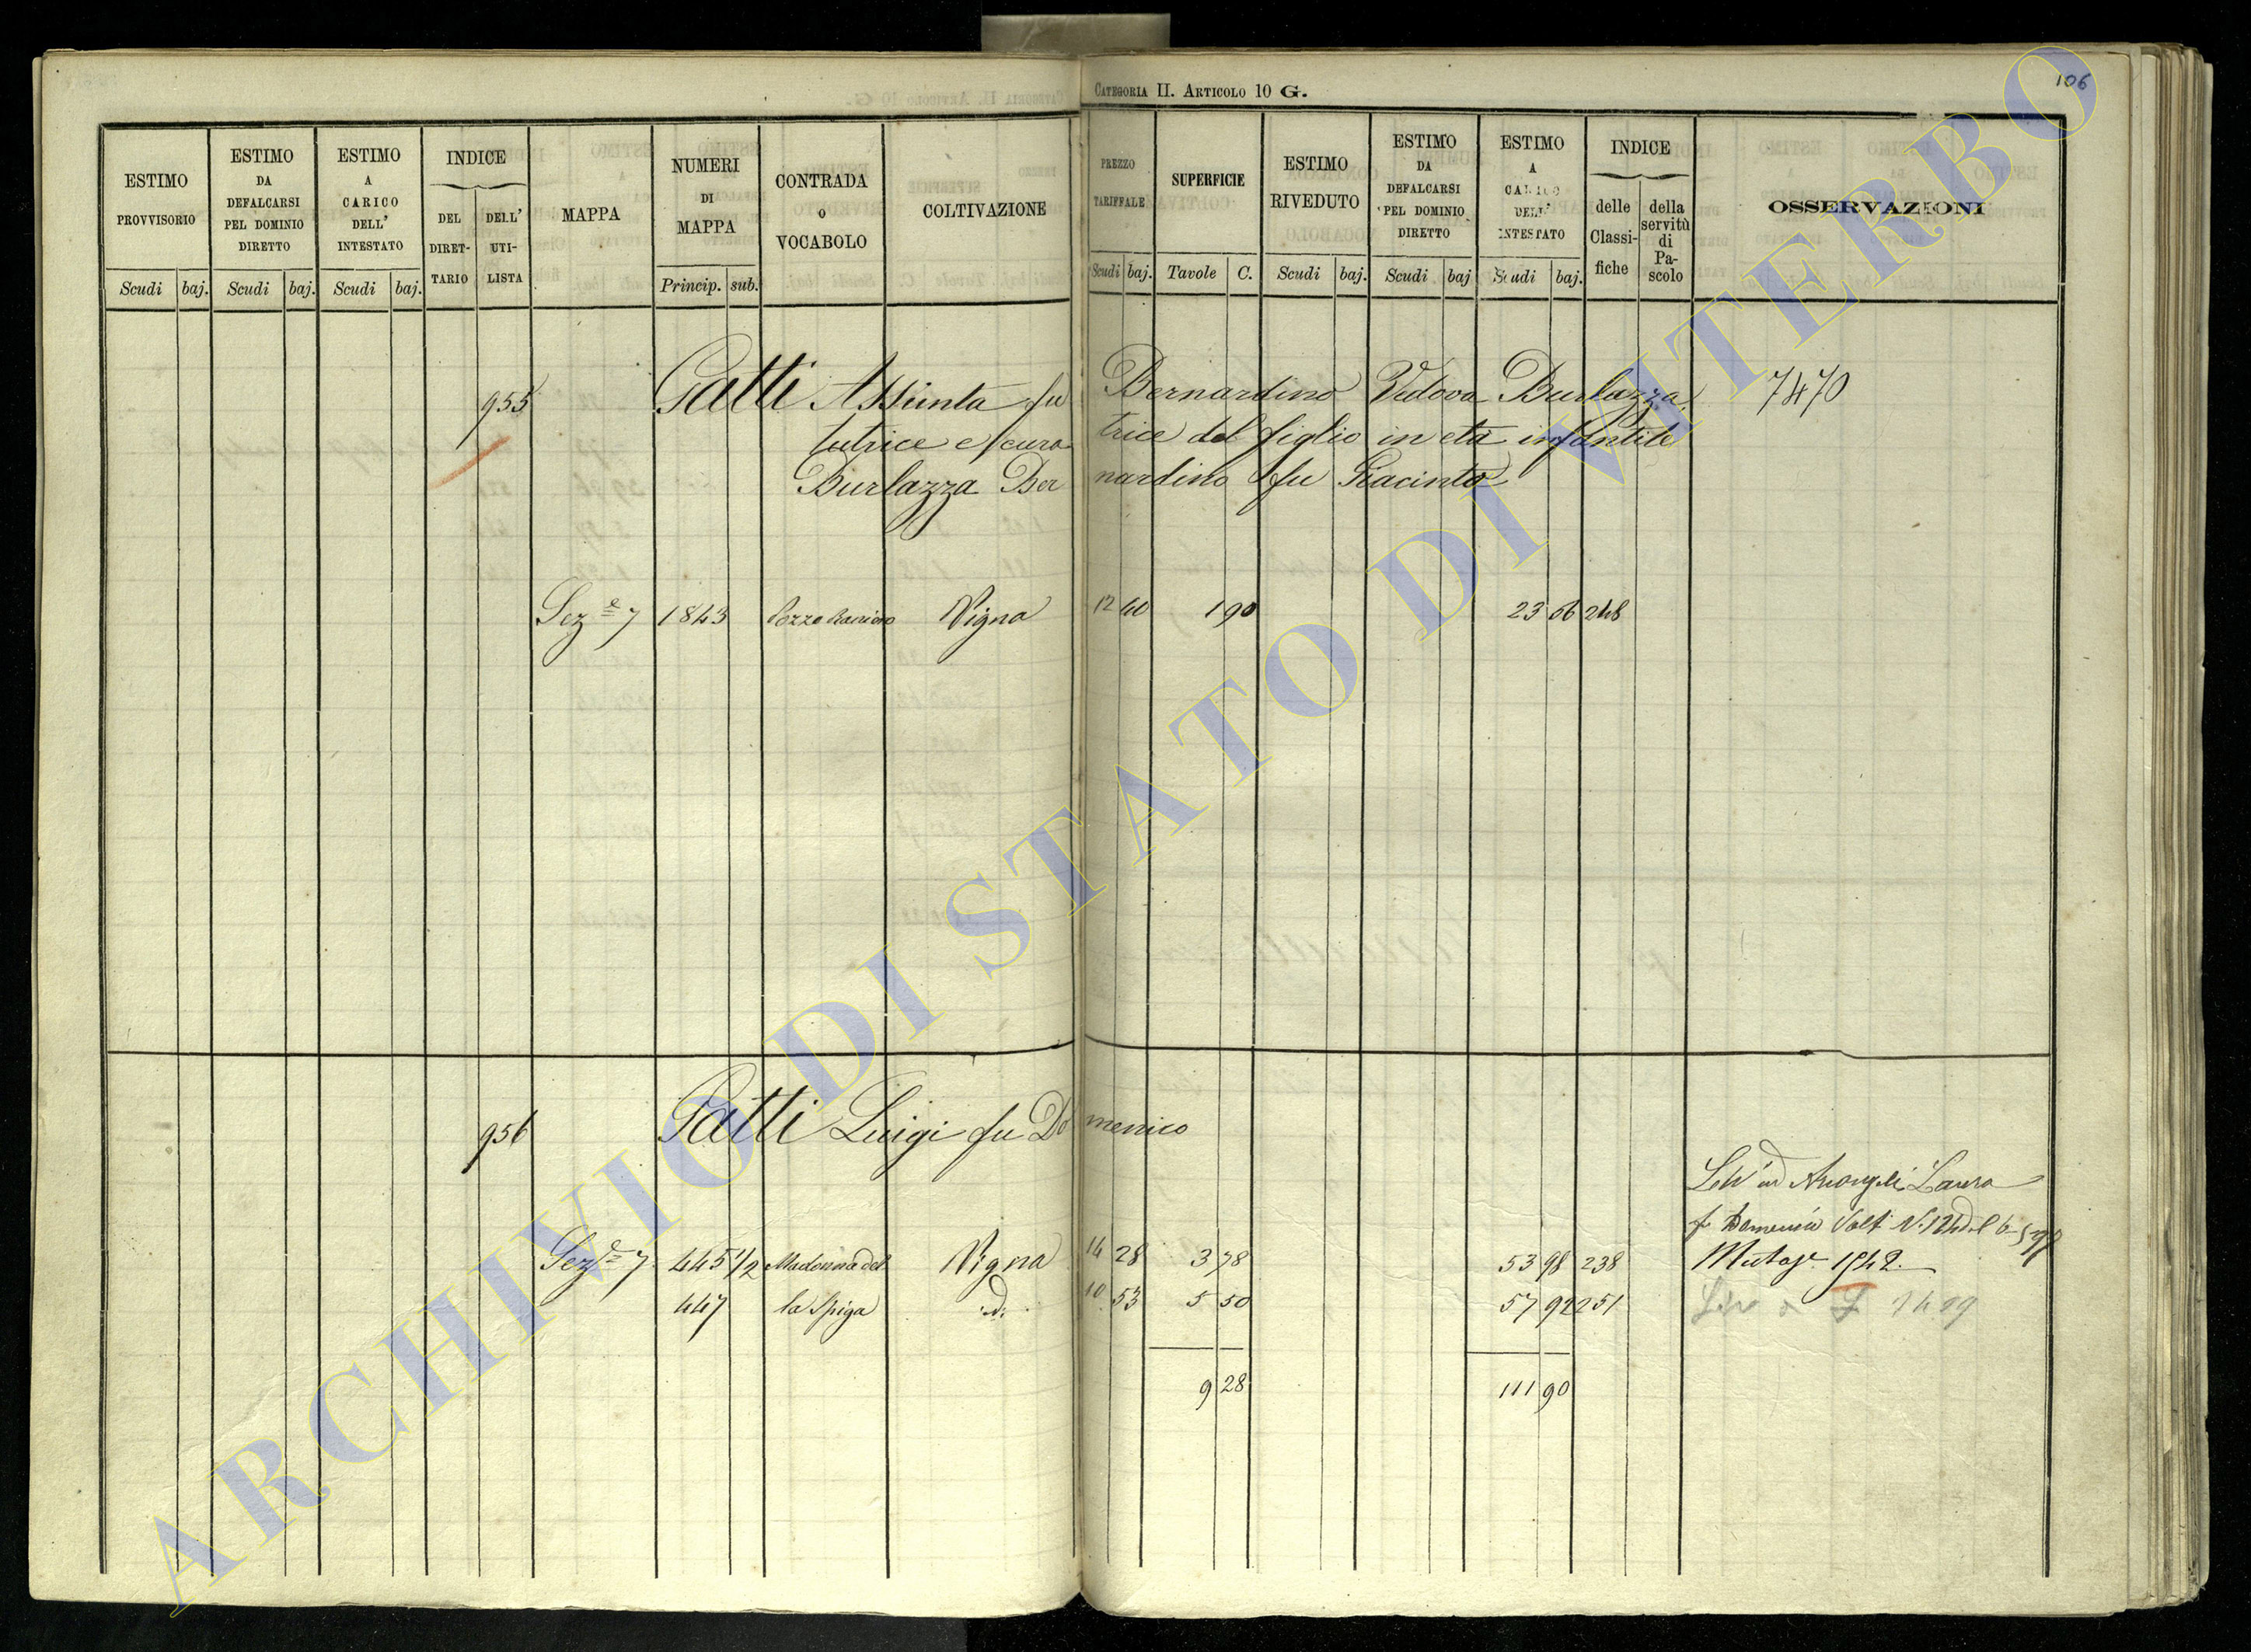 CATEGORIA II. ARTICOLO 10 G.
106
ESTIMO PROVVISORIO
Scudi baj.
ESTIMO DA DEFALCARSI PEL DOMINIO DIRETTO
Scudi baj.
ESTIMO A CARICO DELL' INTESTATO
Scudi baj.
INDICE
DEL DIRET-TARIO
DELL' UTI-LISTA
MAPPA
NUMERI DI MAPPA
Princip. sub.
CONTRADA O VOCABOLO
COLTIVAZIONE
PREZZO TARIFFALE
Scudi baj.
SUPERFICIE
Tavole C.
ESTIMO RIVEDUTO
Scudi baj.
ESTIMO DA DEFALCARSI PEL DOMINIO DIRETTO
Scudi baj
ESTIMO A CARICO DELL' INTESTATO
Scudi baj.
INDICE
delle Classi-fiche
della servitù di Pa-scolo
OSSERVAZIONI
955 Gatti Assunta fu Bernardino Vedova Burlazza 7470
tutrice e curatrice del figlio in età infantile
Burlazza Bernardino fu Giacinto
Sez.e 7 1843 Pozzo Raniero Vigna 12 40 1 90 23 56 248
956 Gatti Luigi fu Domenico
Laura
Sez.e 7 445 1/2 Madonna del Vigna 14 28 3 78 53 98 238 1542
447 la Spiga d. 10 53 5 50 57 92 251
9 28 111 90
ARCHIVIO DI STATO DI VITERBO